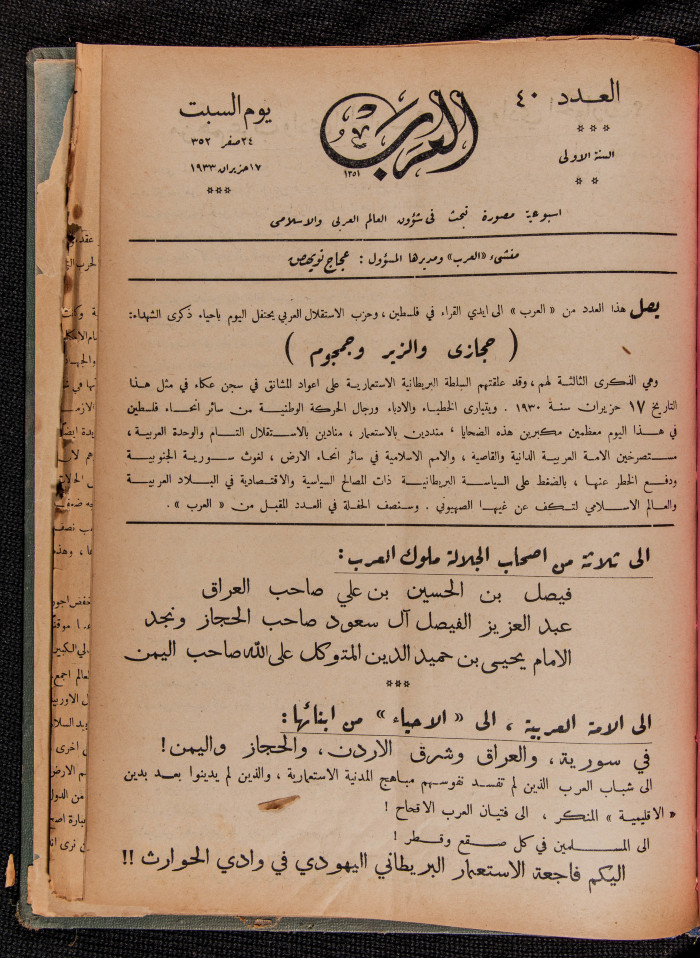 العدد ٤٠
السنة الاولى
العرب
١٣٥١
يوم السبت
٢٤ صفر ٣٥٢
١٧ حزيران ١٩٣٣
اسبوعية مصورة تبحث في شؤون العالم العربي والاسلامي
منشىء «العرب» ومديرها المسؤول : عجاج نويهض
يصل هذا العدد من «العرب» الى ايدي القراء في فلسطين ، وحزب الاستقلال العربي يحتفل اليوم باحياء ذكرى الشهداء:
( حجازي والزير وجمجوم )
وهي الذكرى الثالثة لهم ، وقد علقتهم السلطة البريطانية الاستعمارية على اعواد المشانق في سجن عكاء في مثل هذا
التاريخ ١٧ حزيران سنة ١٩٣٠ . ويتبارى الخطباء والادباء ورجال الحركة الوطنية من سائر انحاء فلسطين
في هذا اليوم معظمين مكبرين هذه الضحايا ، منددين بالاستعمار ، منادين بالاستقلال التام والوحدة العربية ،
مستصرخين الامة العربية الدانية والقاصية ، والامم الاسلامية في سائر انحاء الارض ، لغوث سورية الجنوبية
ودفع الخطر عنها ، بالضغط على السياسة البريطانية ذات المصالح السياسية والاقتصادية في البلاد العربية
والعالم الاسلامي لتكف عن غيها الصهيوني . وسنصف الحفلة في العدد المقبل من « العرب » .
الى ثلاثة من اصحاب الجلالة ملوك العرب :
فيصل بن الحسين بن علي صاحب العراق
عبد العزيز الفيصل آل سعود صاحب الحجاز ونجد
الامام يحيى بن حميد الدين المتوكل على الله صاحب اليمن
الى الامة العربية ، الى « الاحياء » من ابنائها :
في سورية ، والعراق وشرق الاردن ، والحجاز واليمن !
الى شباب العرب الذين لم تفسد نفوسهم مباهج المدنية الاستعمارية ، والذين لم يدينوا بعد بدين
« الاقليمية » المنكر ، الى فتيان العرب الاقحاح !
الى المسلمين في كل صقع وقطر !
اليكم فاجعة الاستعمار البريطاني اليهودي في وادي الحوارث !!